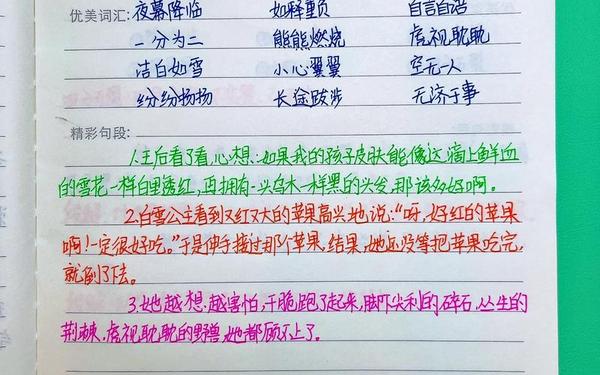 优美词汇: 夜幕降临 如释重负 自言自语
一分为二 熊熊燃烧 虎视耽耽
洁白如雪 小心翼翼 空无一人
纷纷扬扬 长途跋涉 无济于事
精彩句段:
1.王后看了看,心想:如果我的孩子皮肤能像这滴上鲜血
的雪花一样白里透红,再拥有一头乌木一样黑的头发,那该多好啊。
2.白雪公主看到又红又大的苹果高兴地说:“呀,好红的苹果
啊!一定很好吃。”于是伸手接过那个苹果,结果,她还没等把苹果吃完,
就倒了下去。
3.她越想越害怕,干脆跑了起来,脚下尖利的碎石,丛生的
荆棘,虎视耽耽的野兽,她都顾不上了。